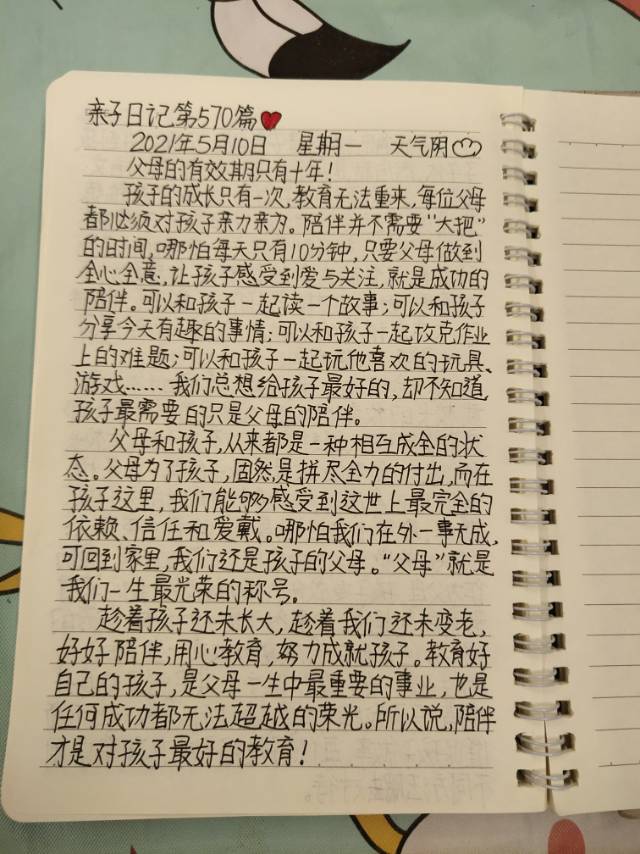 亲子日记第570篇
2021年5月10日 星期一 天气阴
父母的有效期只有十年!
孩子的成长只有一次,教育无法重来,每位父母
都必须对孩子亲力亲为。陪伴并不需要“大把”
的时间,哪怕每天只有10分钟,只要父母做到
全心全意,让孩子感受到爱与关注,就是成功的
陪伴。可以和孩子一起读一个故事;可以和孩子
分享今天有趣的事情;可以和孩子一起攻克作业
上的难题;可以和孩子一起玩他喜欢的玩具、
游戏……我们总想给孩子最好的,却不知道
孩子最需要的只是父母的陪伴。
父母和孩子,从来都是一种相互成全的状
态。父母为了孩子,固然是拼尽全力的付出,而在
孩子这里,我们能够感受到这世上最完全的
依赖、信任和爱戴。哪怕我们在外一事无成,
可回到家里,我们还是孩子的父母。“父母”就是
我们一生最光荣的称号。
趁着孩子还未长大,趁着我们还未变老,
好好陪伴,用心教育,努力成就孩子。教育好
自己的孩子,是父母一生中最重要的事业,也是
任何成功都无法超越的荣光。所以说,陪伴
才是对孩子最好的教育!